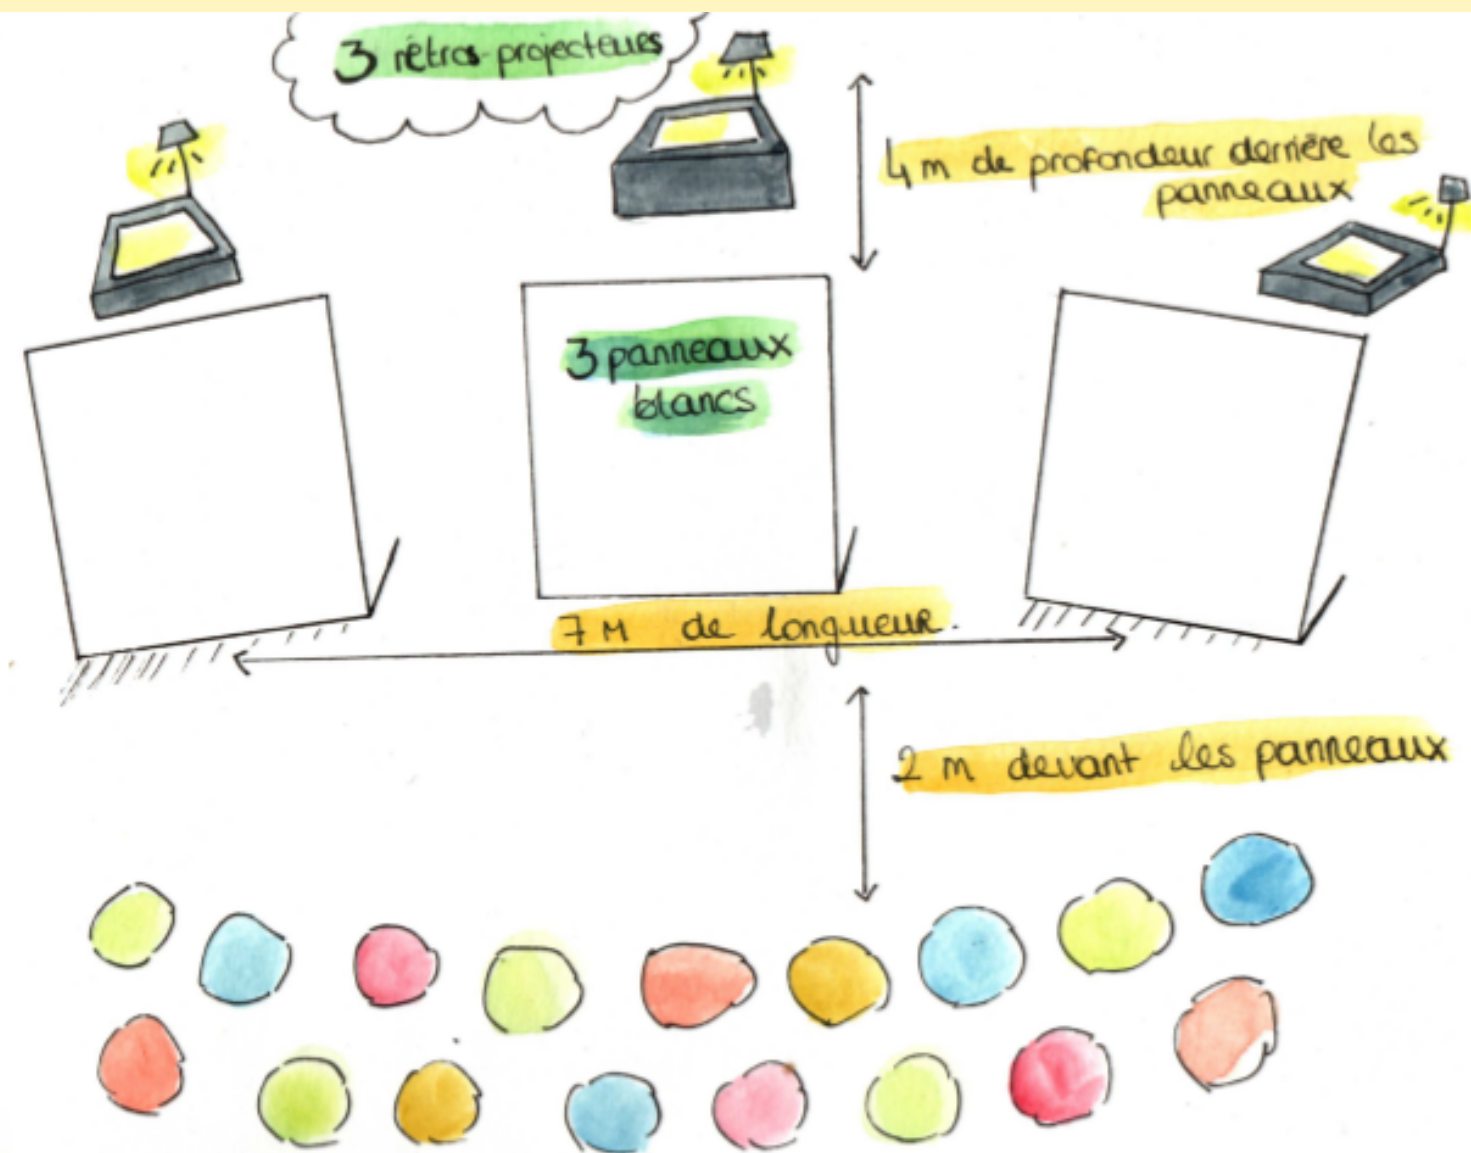 3 rétros-projecteurs
4 m de profondeur derrière les
panneaux
3 panneaux
blancs
7 M de longueur.
2 m devant les panneaux